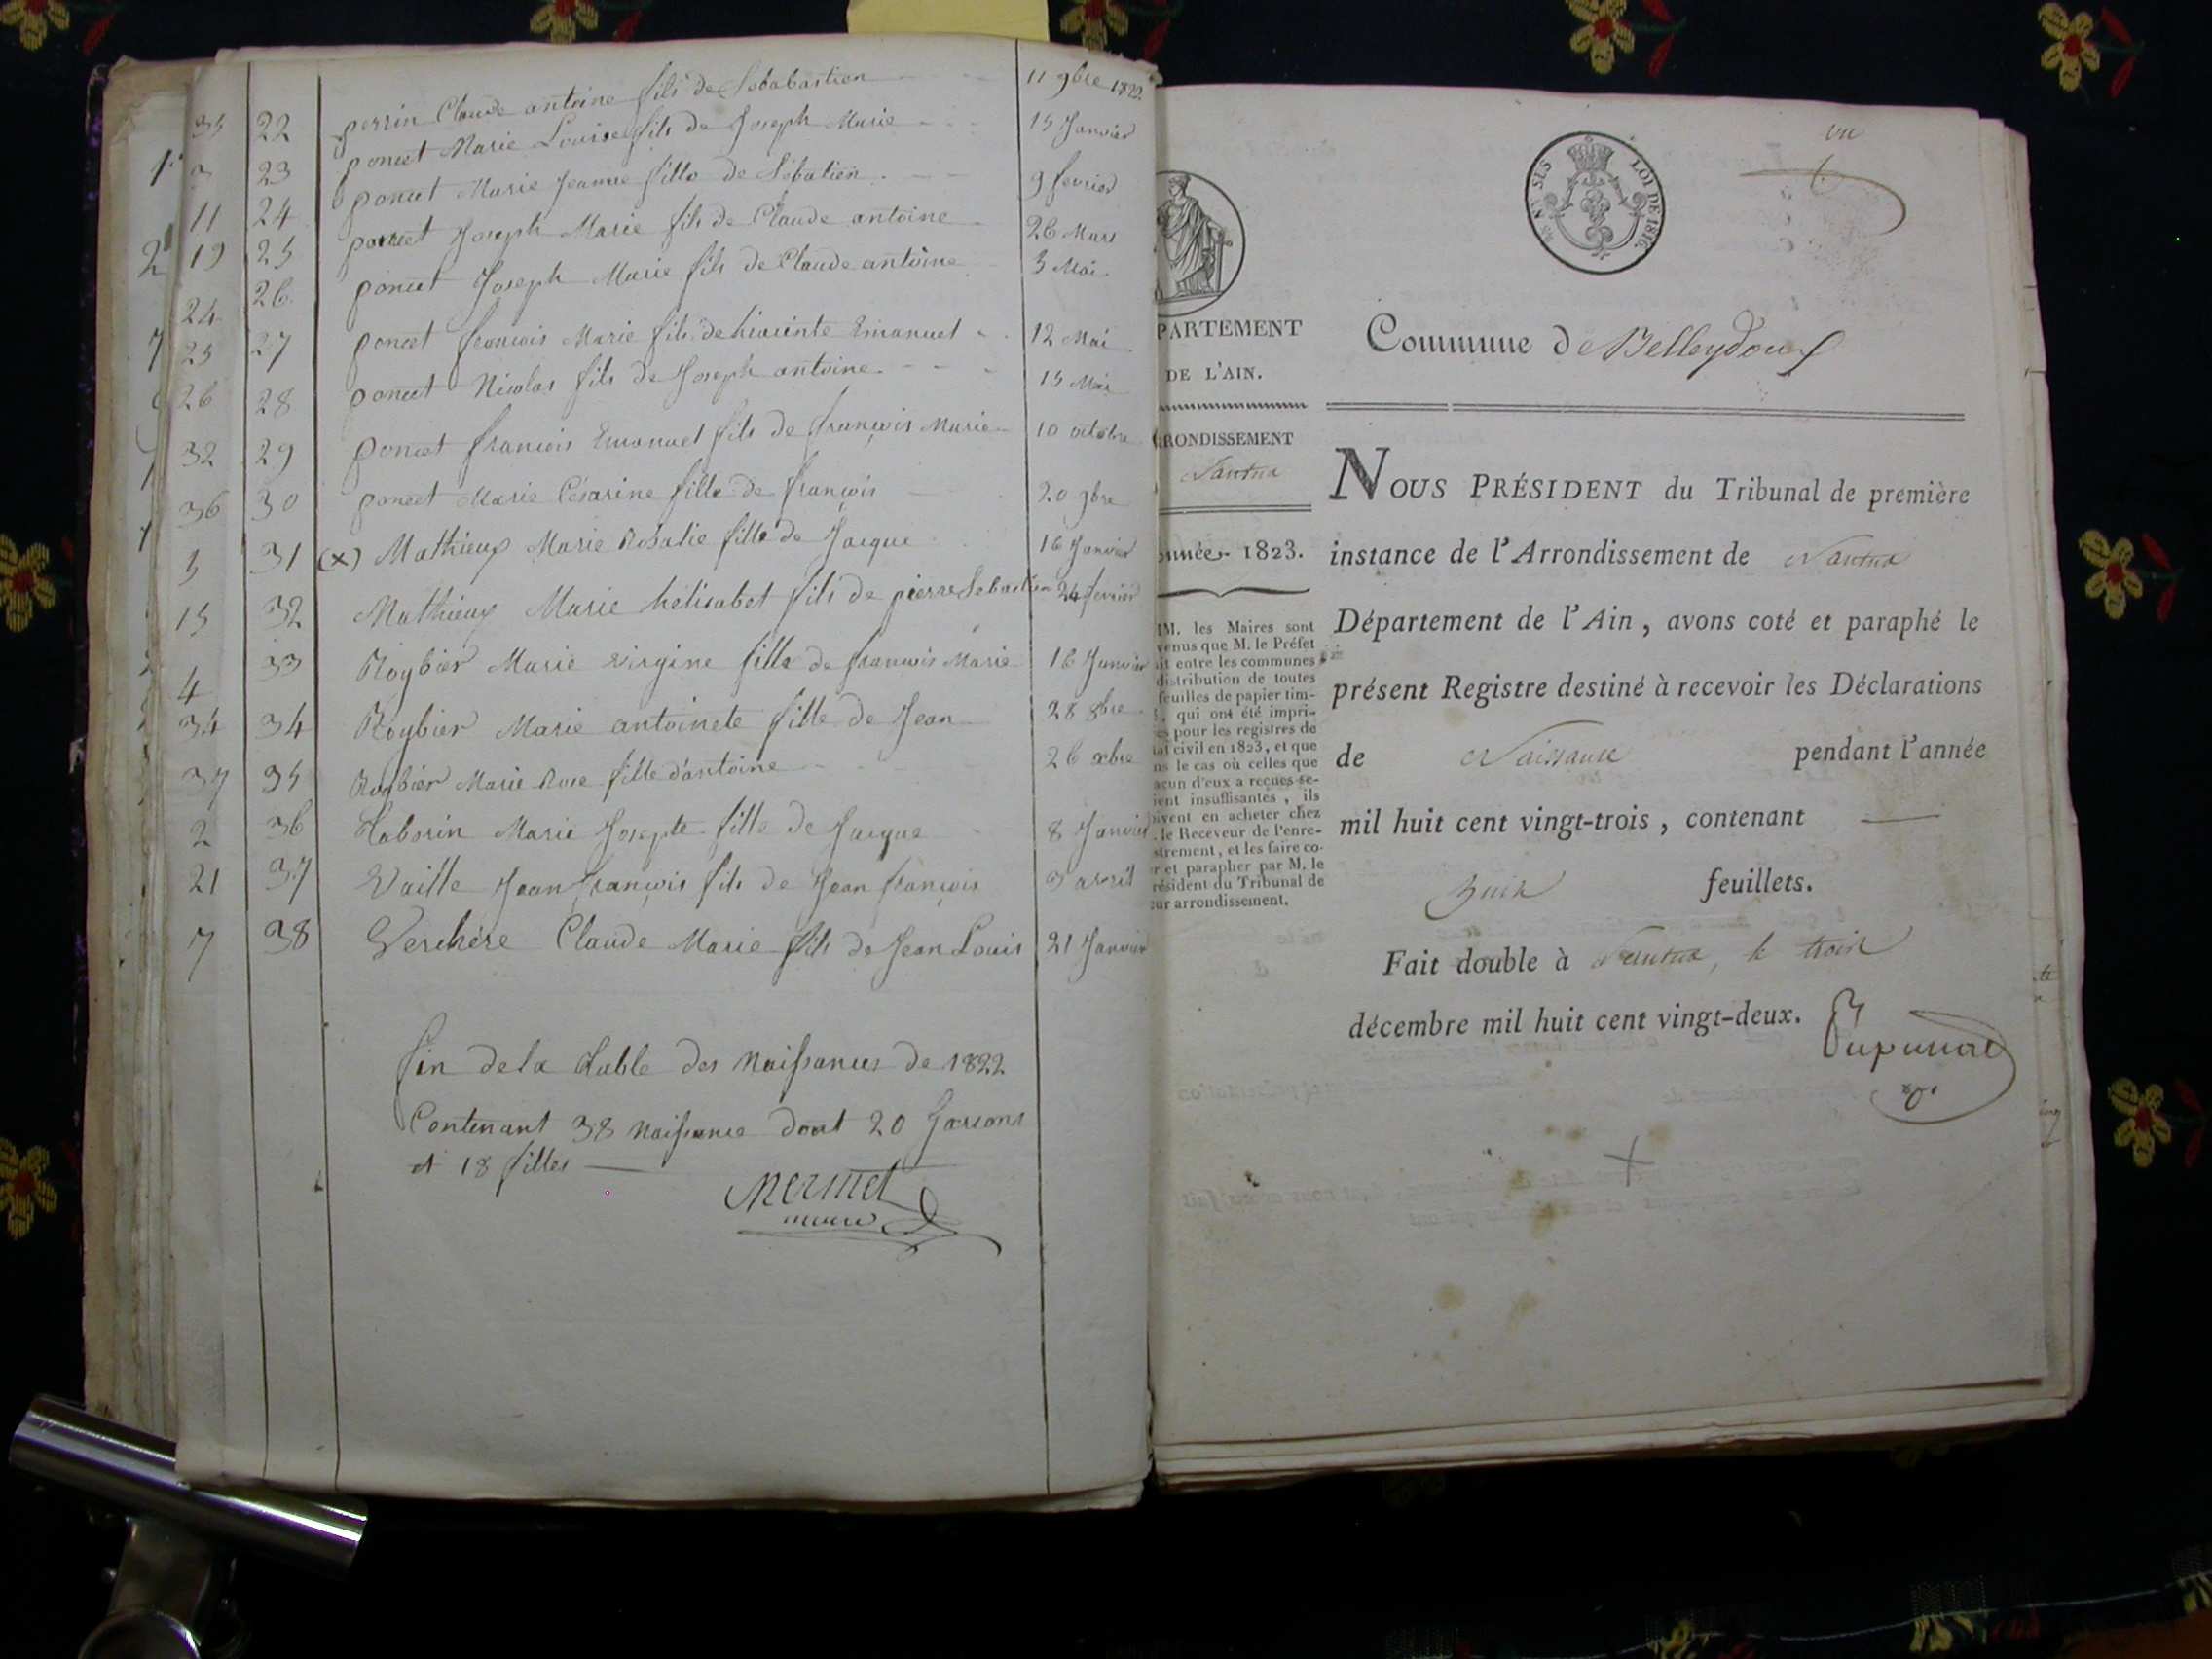 35 22 perrin Claude antoine fils de Sebabastien 11 9bre 1822.
3 23 poncet Marie Louise fils de Joseph Marie 15 Janvier
11 24 poncet Marie Jeanne fille de Sébatien 9 fevrier
19 25 poncet Joseph Marie fils de Claude antoine 26 Mars
24 26 poncet Joseph Marie fils de Claude antoine 3 Mai
25 27 poncet francois Marie fils de hiacinte Emanuel 12 Mai
26 28 poncet Nicolas fils de Joseph antoine 15 Mai
32 29 poncet francois Emanuel fils de françois Marie 10 octobre
36 30 poncet Marie Césarine fille de françois 20 9bre
5 31 (x) Mathieux Marie Rosalie fille de Jacque 16 Janvier
15 32 Mathieux Marie helisabet fils de pierre Sebastien 24 fevrier
4 33 Roybier Marie virgine fille de francois Marie 16 Janvier
34 34 Roybier Marie antoinete fille de Jean 28 8bre
37 35 Roybier Marie Rose fille d'antoine 26 xbre
2 36 Taborin Marie Josepte fille de Jacque 8 Janvier
21 37 Vaille Jean françois fils de Jean françois 3 avril
7 38 Verchère Claude Marie fils de Jean Louis 21 Janvier
fin de la table des Naissances de 1822
Contenant 38 Naissance dont 20 Garsons
et 18 filles
Mermet
maire
vu
LOI DE 1816.
PARTEMENT
DE L'AIN.
RONDISSEMENT
Nantua
nnée 1823.
M. les Maires sont
venus que M. le Préfet
it entre les communes
distribution de toutes
feuilles de papier tim-
, qui ont été impri-
pour les registres de
at civil en 1823, et que
ns le cas où celles que
acun d'eux a reçues se-
ient insuffisantes, ils
ivent en acheter chez
. le Receveur de l'enre-
strement, et les faire co-
r et parapher par M. le
résident du Tribunal de
ur arrondissement.
Commune de Belleydoux
NOUS PRÉSIDENT du Tribunal de première
instance de l'Arrondissement de Nantua
Département de l'Ain, avons coté et paraphé le
présent Registre destiné à recevoir les Déclarations
de Naissance pendant l'année
mil huit cent vingt-trois, contenant
huit feuillets.
Fait double à Nantua, le trois
décembre mil huit cent vingt-deux.